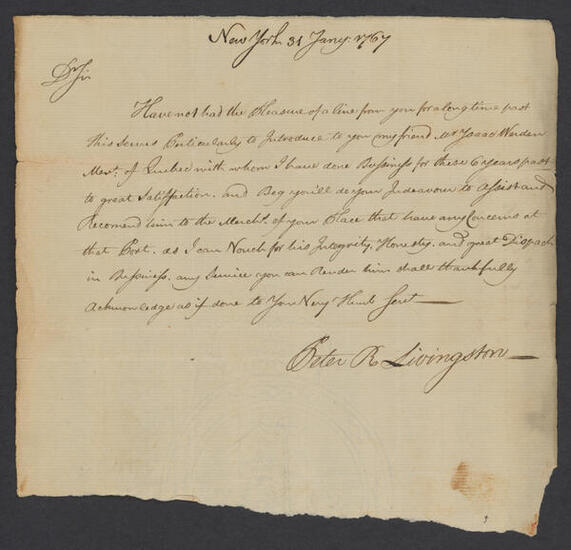 New York 31 Jany. 1767
Dr Sir
Have not had the Pleasure of a line from you for a long time past
this serves Particularly to Introduce to you my friend Mr Isaac Werden
Mert. of Quebec with whom I have done Bussiness for these 6 years past
to great Satisfaction. and Beg you'll do your Indeavour to Assist and
Recomend him to the Mercht. of your Place that have any Concerns at
that Port. as I can Vouch for his Integrity, Honesty. and great Dispach
in Bussiness. any Service you can Render him shall thankfully
Acknowledge as if done to Your Very Humb Servt
Peter R Livingston